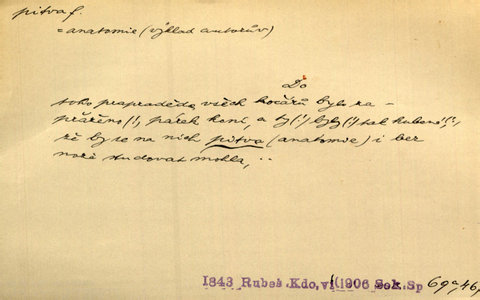 pitva f.
= anatomie (výklad autorův)
Do
toho prapraděda všech kočárů bylo za-
přaženo(!) párek koní, a ty(!) byly(!) tak hubené,(!)
že by se na nich pitva (anatomie) i bez
nože studovat mohla, ..
1843 Rubeš.Kdo,ví(1906 Sek.Sp 69a,46,